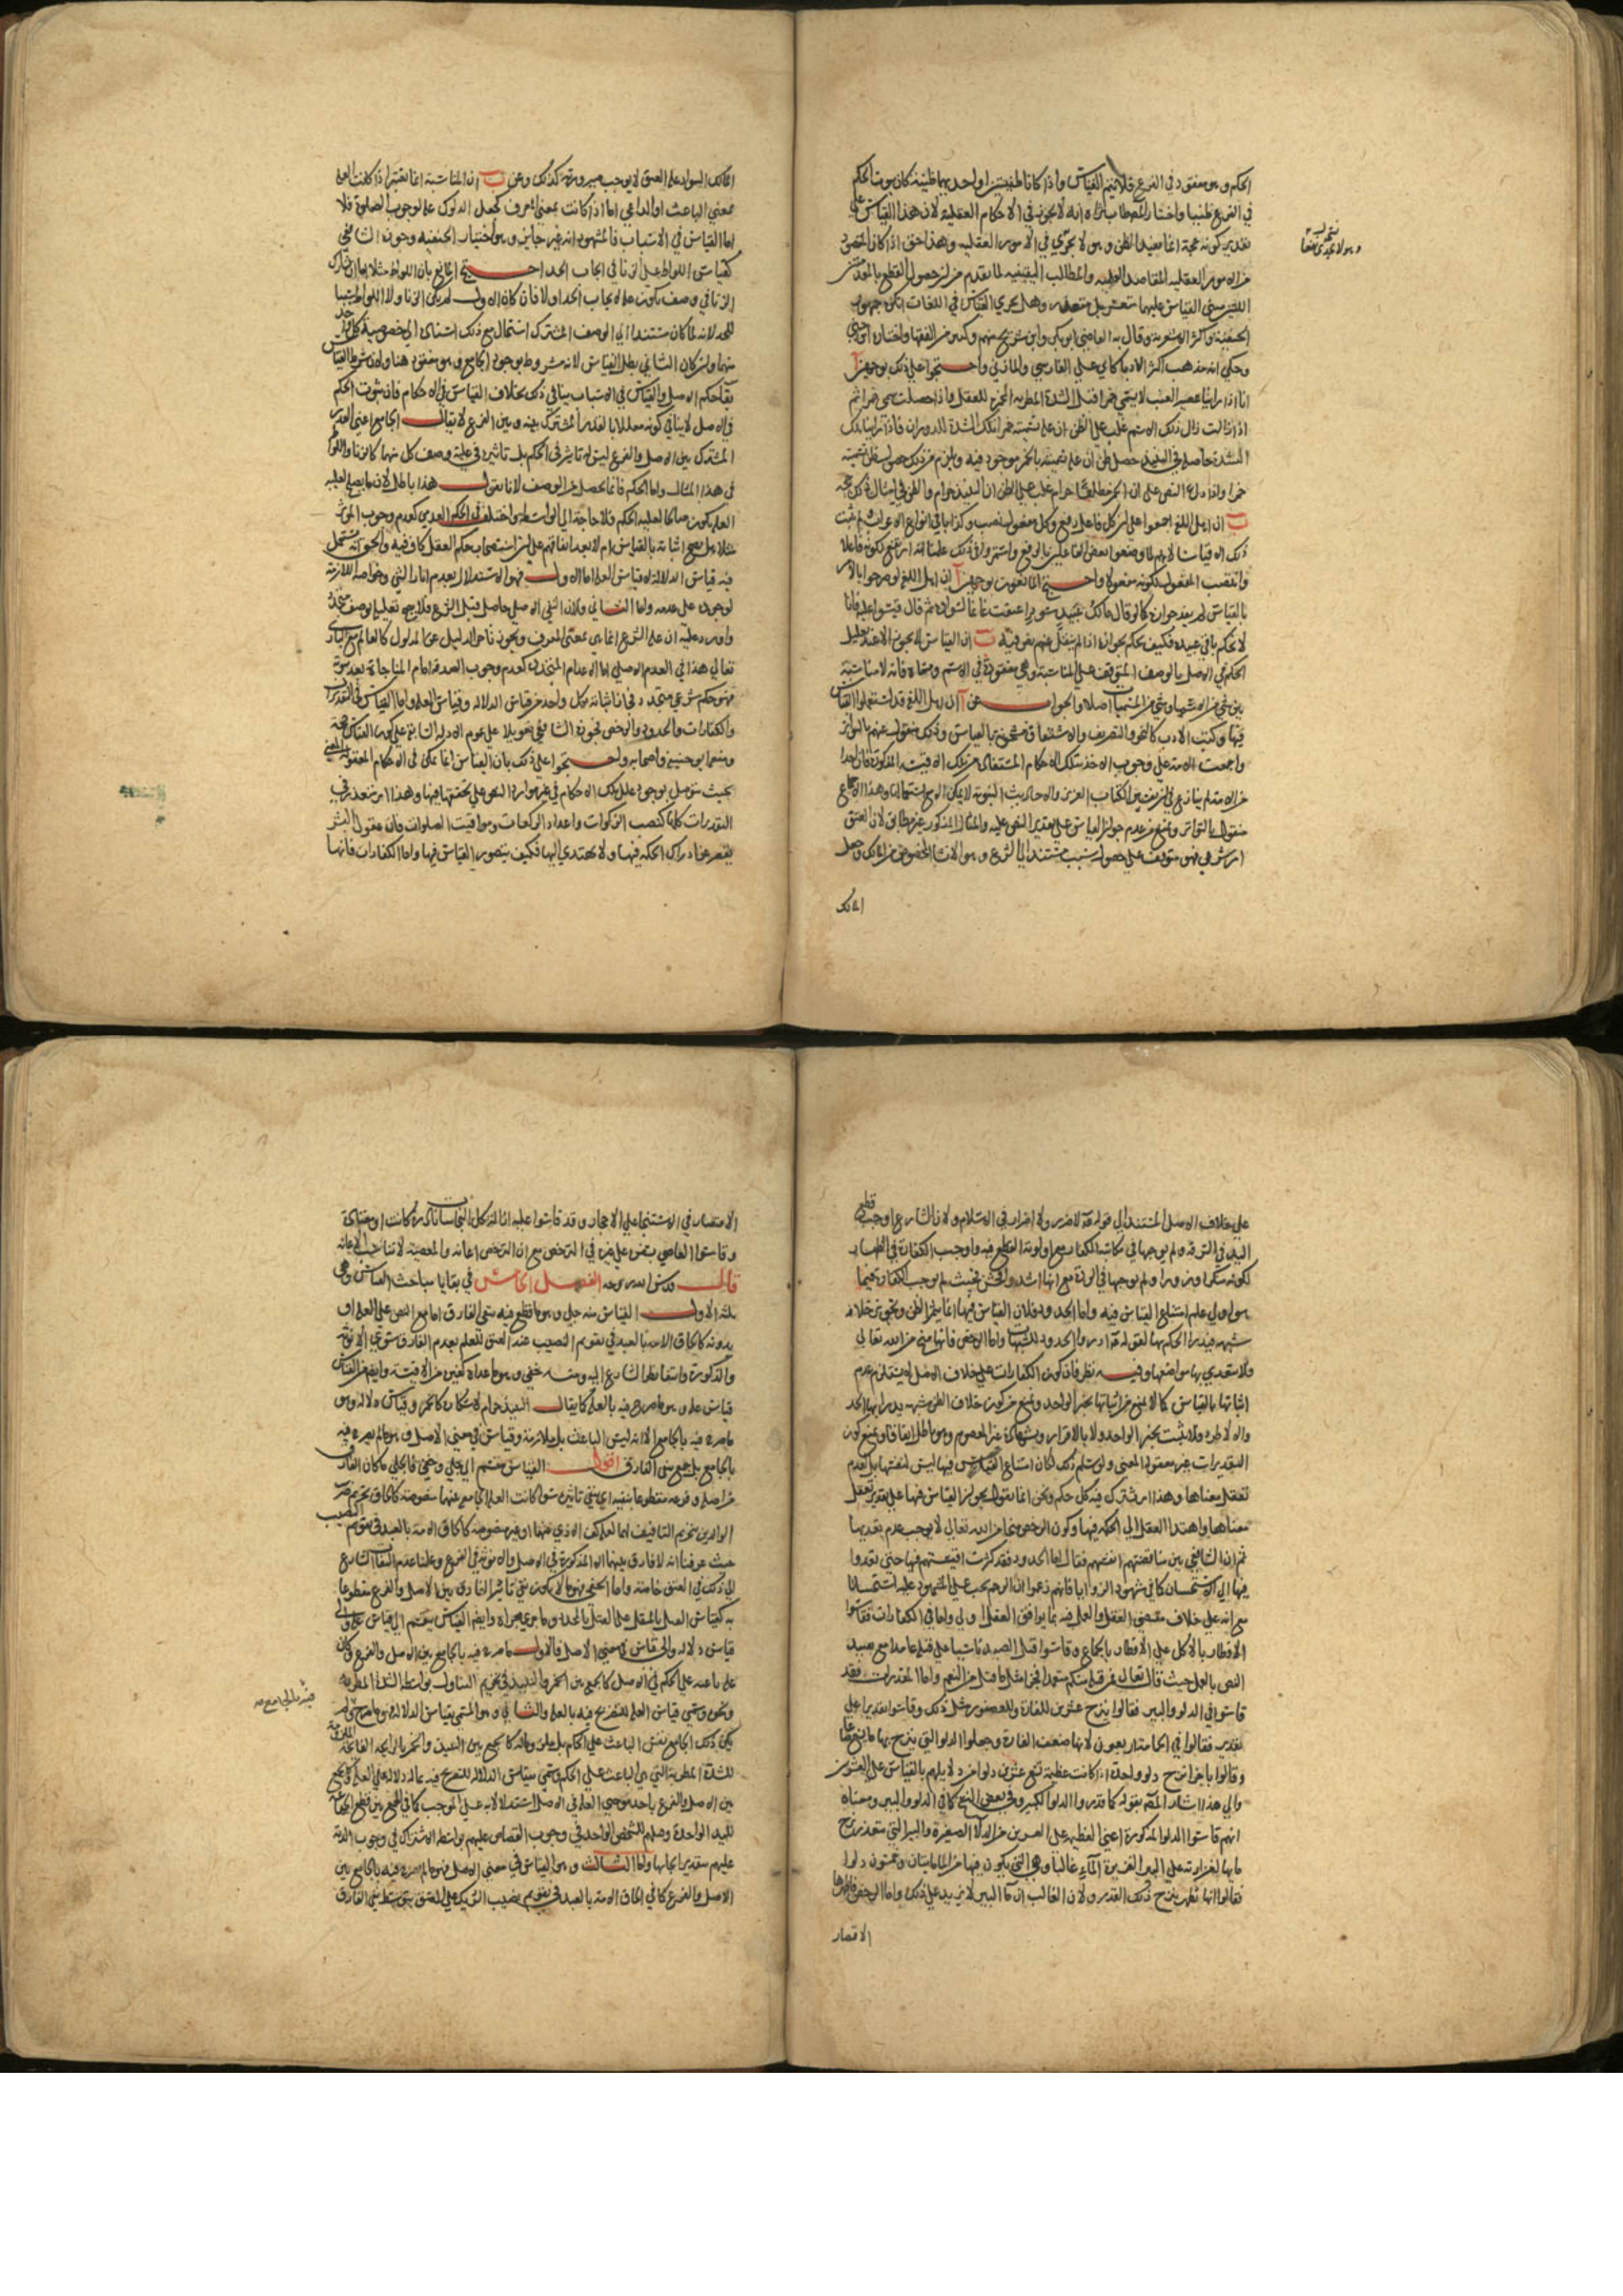 الحكم وهو مفقود في الفرع فلا يتم القياس واذا كانا ظنيتين او احديهما ظنية كان ثبوت الحكم
في الفرع ظنيا واختار المصنف طاب ثراه انه لا يجوز في الاحكام العقلية لان هذا القياس على
تقدير كونه حجة انما يفيد الظن وهو لا يجزي في الامور العقلية وهذا حق اذا كان المقصود
من الامور العقلية المقاصد العلمية والمطالب اليقينية لما تقدم من ان حصول القطع بالمقدمتين
اللتين مبنى القياس عليهما متعسر بل متعذر وهل يجري القياس في اللغات انكره جمهور
الحنفية واكثر الاشعرية وقال به القاضي ابو بكر وابن سريج منهم وكثير من الفقها واختاره ابن جني
وحكي انه مذهب اكثر الادبا كابي علي الفارسي والمازني واحتجوا على ذلك بوجهين آ
انا اذا راينا عصير العنب لا يسمى خمرا قبل الشدة المطربة المخمرة للعقل واذا حصلت سمي خمرا ثم
اذا زالت زال ذلك الاسم غلب على الظن ان علة تسميته خمرا تلك الشدة للدوران فاذا راينا تلك
الشدة حاصلة في النبيذ حصل ظن ان علة تسميته بالخمر موجودة فيه ويلزم من ذلك حصول ظن تسميته
خمرا واذا دل النص على ان الخمر مطلقا حرام غلب على الظن ان النبيذ حرام والظن في امثال ذلك حجة
ب ان اهل اللغة اجمعوا على ان كل فاعل رفع وكل مفعول نصب وكذا باقي انواع الاعراب ولم يثبت
ذلك الا قياسا لانهم لما وصفوا بعض الفاعلين بالرفع واستمروا على ذلك علمنا انه ارتفع لكونه فاعلا
وانتصب المفعول لكونه مفعولا واحتج المانعون بوجهين آ ان اهل اللغة لو صرحوا بالامر
بالقياس لم يفد جوازه كما لو قال مالك عبيد سود اعتقت غانما لسواده ثم قال قيسوا عليه فانا
لا نحكم بعتق باقي عبيده فكيف يحكم بجوازه اذا لم ينقل عنهم نص فيه ب ان القياس لا يجوز الا عند تعليل
الحكم في الاصل بالوصف المتوقف على المناسبة وهي مفقودة في الاسم ومسماه فانه لا مناسبة
بين شي من الاسماء وشي من المسميات اصلا والجواب عن آ ان اهل اللغة قد استعملوا القياس
فيها وكتب الادب كالنحو والتصريف والاشتقاق مشحونة بالقياس وذلك منقول عنهم بالتواتر
واجمعت الامة على وجوب الاخذ بتلك الاحكام المستفادة من تلك الاقيسة المذكورة فان احدا
من الامة لم ينازع في ان تفسير الكتاب العزيز والاحاديث النبوية لا يمكن الا مع استعمالها وهذا الاجماع
منقول بالتواتر ونمنع من عدم جواز القياس على تقدير النص عليه والمثال المذكور غير مطابق لان العتق
امر شرعي فهو متوقف على حصول سبب مستند الى الشرع وهو الانشا المخصوص من المالك وجعل
المالك
وهو لا يجدي نفعا
المالك السواد علة العتق لا يوجب صيرورته كذلك وعن ب ان المناسبة انما تعتبر اذا كانت العلة
بمعنى الباعث او الداعي اما اذا كانت بمعنى المعرف كجعل الدلوك علة لوجوب الصلوة فلا
اما القياس في الاسباب فالمشهور انه غير جايز وهو اختيار الحنفية وجوزه الشافعي
كقياس اللواط على الزنا في ايجاب الحد احتج المانع بان اللواط مثلا اما ان يشارك
الزنا في وصف يكون علة لايجاب الحد او لا فان كان الاول لم يكن الزنا ولا اللواط سببا
للحد لانه لما كان مستندا الى الوصف المشترك استحال مع ذلك استناده الى خصوصية كل واحد
منهما وان كان الثاني بطل القياس لانه مشروط بوجود الجامع وهو مفقود هنا ولان شرط القياس
بقا حكم الاصل والقياس في الاسباب ينافي ذلك بخلاف القياس في الاحكام فان ثبوت الحكم
في الاصل لا ينافي كونه معللا بالقدر المشترك بينه وبين الفرع لا يقال الجامع اعني القدر
المشترك بين الاصل والفرع ليس له تاثير في الحكم بل تاثيره في علية وصف كل منهما كالزنا واللواط
في هذا المثال واما الحكم فانما يحصل من الوصف لانا نقول هذا باطل لان ما يصلح لعلية
العلة يكون صالحا لعلية الحكم فلا حاجة الى الواسطة واختلف في الحكم العدمي كعدم وجوب الوتر
مثلا هل يصح اثباته بالقياس ام لا بعد اتفاقهم على ان استصحاب حكم العقل كاف فيه والحق انه يستعمل
فيه قياس الدلالة لا قياس العلة اما الاول فهو الاستدلال بعدم اثار الشي وخواصه اللازمة
لوجوده على عدمه واما الثاني فلان النفي الاصلي حاصل قبل الشرع فلا يجوز تعليله بوصف متجدد
واورد عليه ان علة الشرع انما هي بمعنى المعرف ويجوز تاخر الدليل عن المدلول كالعالم مع الباري
تعالى هذا في العدم الاصلي اما الاعدام المتجددة كعدم وجوب الصدقة امام المناجاة بعد ثبوته
فهو حكم شرعي متجدد فجاز اثباته بكل واحد من قياس الدلالة وقياس العلة واما القياس في التقديرات
والكفارات والحدود والرخص فجوزه الشافعي تعويلا على عموم الادلة الدالة على كون القياس حجة
ومنعه ابو حنيفة واصحابه واحتجوا على ذلك بان القياس انما يمكن في الاحكام المعقولة المعنى
بحيث نتوصل بوجود علل تلك الاحكام في غير موارد النص على تحققها فيها وهذا امر متعذر في
التقديرات كلها كنصب الزكوات واعداد الركعات ومواقيت الصلوات فان عقول البشر
تقصر عن ادراك الحكمة فيها ولا تهتدي اليها فكيف يتصور القياس فيها واما الكفارات فانها
على خلاف الاصل المستند الى قوله عليه السلام لا ضرر ولا اضرار في الاسلام ولان الشارع اوجب قطع
اليد في السرقة ولم يوجبها في مكاتبة الكفار مع اولوية القطع فيه واوجب الكفارة في الظهار
لكونه منكرا وزورا ولم يوجبها في الردة مع انها اشد وافحش فحيث لم يوجب الكفارة فيما
هو اولى علم امتناع القياس فيه واما الحدود فلان القياس فيها انما يثمر الظن وتجويز خلافه
شبهة فيدرا الحكم بها لقوله عليه السلام ادرؤا الحدود بالشبهات واما الرخص فانها منح من الله تعالى
فلا يتعدى بها مواضعها وفيه نظر فان كون الكفارات على خلاف الاصل لا يستلزم عدم
اثباتها بالقياس كما لا يمنع من اثباتها بخبر الواحد ونمنع من كون خلاف الظن شبهة يدرا بها الحد
والا لاطرد فلا يثبت بخبر الواحد ولا بالاقرار وبشهادة غير المعصوم وهو باطل اتفاقا ونمنع كون
التقديرات غير معقولة المعنى ولو سلم ذلك لكان امتناع القياس فيها ليس لنفسها بل لعدم
تعقل معناها وهذا امر يشترك فيه كل حكم ونحن انما نقول بجواز القياس فيها على تقدير تعقل
معناها واهتدا العقل الى الحكمة فيها وكون الرخص منحا من الله تعالى لا يوجب عدم تعديها
ثم ان الشافعي بين مناقضتهم انفسهم فقال اما الحدود فقد كثرت اقيستهم فيها حتى تعدوا
فيها الى الاستحسان كما في شهود الزوايا فانهم زعموا ان الرجم يجب على المشهود عليه استحسانا
مع انه على خلاف مقتضى العقل والعمل فيه بما يوافق العقل اولى واما في الكفارات فقاسوا
الافطار بالاكل على الافطار بالجماع وقاسوا قتل الصيد ناسيا على قتله عامدا مع تقييد
النص بالعمد حيث قال تعالى فمن قتله منكم متعمدا فجزاء مثل ما قتل من النعم واما المقدرات فقد
قاسوا في الدلو والبير فقالوا ينزح عشرين للفارة وللعصفور مثل ذلك وقاسوا تقديرا على
تقدير فقالوا في الحمامة اربعون لانها ضعف الفارة وجعلوا الدلو التي ينزح بها ما يسع صاعا
وقالوا باجزا نزح دلو واحدة اذا كانت عظيمة تسع عشرين دلوا من دلايهم بالقياس على العشرين
والى هذا اشار المصنف بقوله كما قدروا الدلو الكبير وفي بعض النسخ كما في الدلو والبير ومعناه
انهم قاسوا الدلو المذكورة اعني العظيمة على العشرين من الدلا الصغيرة والبير التي يتعذر نزح
مايها لغزارته على البير الغزيرة الماء غالبا وهي التي يكون فيها من الماء مايتان وخمسون دلوا
فقالوا انها تطهر بنزح ذلك القدر ولان الغالب ان ما البير لا يزيد على ذلك واما الرخص فاظهرها
الاقتصار
الاقتصار في الاستنجا على الاحجار وقد قاسوا عليه ازالة كل النجاسات نادرة كانت او معتادة
وقاسوا العاصي بسفره على غيره في الترخص مع ان الترخص اعانة والمعصية لا تناسب الاعانة
قال قدس الله روحه الفصل الخامس في بقايا مباحث القياس وهي
ثلثة الاول القياس منه جلي وهو ما قطع فيه بنفي الفارق اما مع النص على العلة او
بدونه كالحاق الامة بالعبد في تقويم النصيب عند العتق للعلم بعدم الفارق سوى الانوثة
والذكورة واسقاطها الشارع اليه ومنه خفي وهو ما عداه كغيره من الاقيسة وايضا من القياس
قياس علة وهو ما صرح فيه بالعلة كما يقال النبيذ حرام لاسكاره كالخمر وقياس دلالة وهو
ما صرح فيه بالجامع الا انه ليس الباعث بل ملازمه وقياس في معنى الاصل وهو ما لم يصرح فيه
بالجامع بل جمع بنفي الفارق اقول القياس ينقسم الى جلي وخفي فالجلي ما كان الفارق
من اصله وفرعه مقطوعا بنفيه اي بنفي تاثيره سوا كانت العلة الجامعة بينهما منصوصة كالحاق تحريم ضرب
الوالدين بتحريم التافيف لهما لعلة كف الاذى عنهما او غير منصوصة كالحاق الامة بالعبد في تقويم النصيب
حيث عرفنا انه لا فارق بينهما الا الذكورة في الاصل والانوثة في الفرع وعلمنا عدم التفات الشارع
الى ذلك في العتق خاصة واما الخفي فهو ما لا يكون نفي تاثير الفارق بين الاصل والفرع مقطوعا
به كقياس القتل بالمثقل على القتل بالمحدد وما جرى مجراه وايضا القياس ينقسم الى قياس علة والى
قياس دلالة والى قياس في معنى الاصل فالاول ما صرح فيه بالجامع بين الاصل والفرع وكان
علة باعثة على الحكم في الاصل كالجمع بين الخمر والنبيذ في تحريم التناول بواسطة الشدة المطربة
ونحوه وسمي قياس العلة للتصريح فيه بالعلة والثاني وهو المسمى بقياس الدلالة فهو ما صرح فيه بالجامع ولم
يكن ذلك الجامع نفس الباعث على الحكم بل ملزومه كالجمع بين النبيذ والخمر بالرايحة الفايحة الملازمة
للشدة المطربة التي هي الباعث على الحكم وسمي بقياس الدلالة للتصريح فيه بما له دلالة على العلة وكالجمع
بين الاصل والفرع باحد موجبي العلة في الاصل استدلالا به على الموجب كما في الجمع بين قطع الجماعة
لليد الواحدة وقتلهم للشخص الواحد في وجوب القصاص عليهم بواسطة الاشتراك في وجوب الدية
عليهم بتقدير ايجابها واما الثالث وهو القياس في معنى الاصل فهو ما لم يصرح فيه بالجامع بين
الاصل والفرع كما في الحاق الامة بالعبد في تقويم نصيب الشريك على المعتق بتوسط نفي الفارق
فيه بالجامع صح